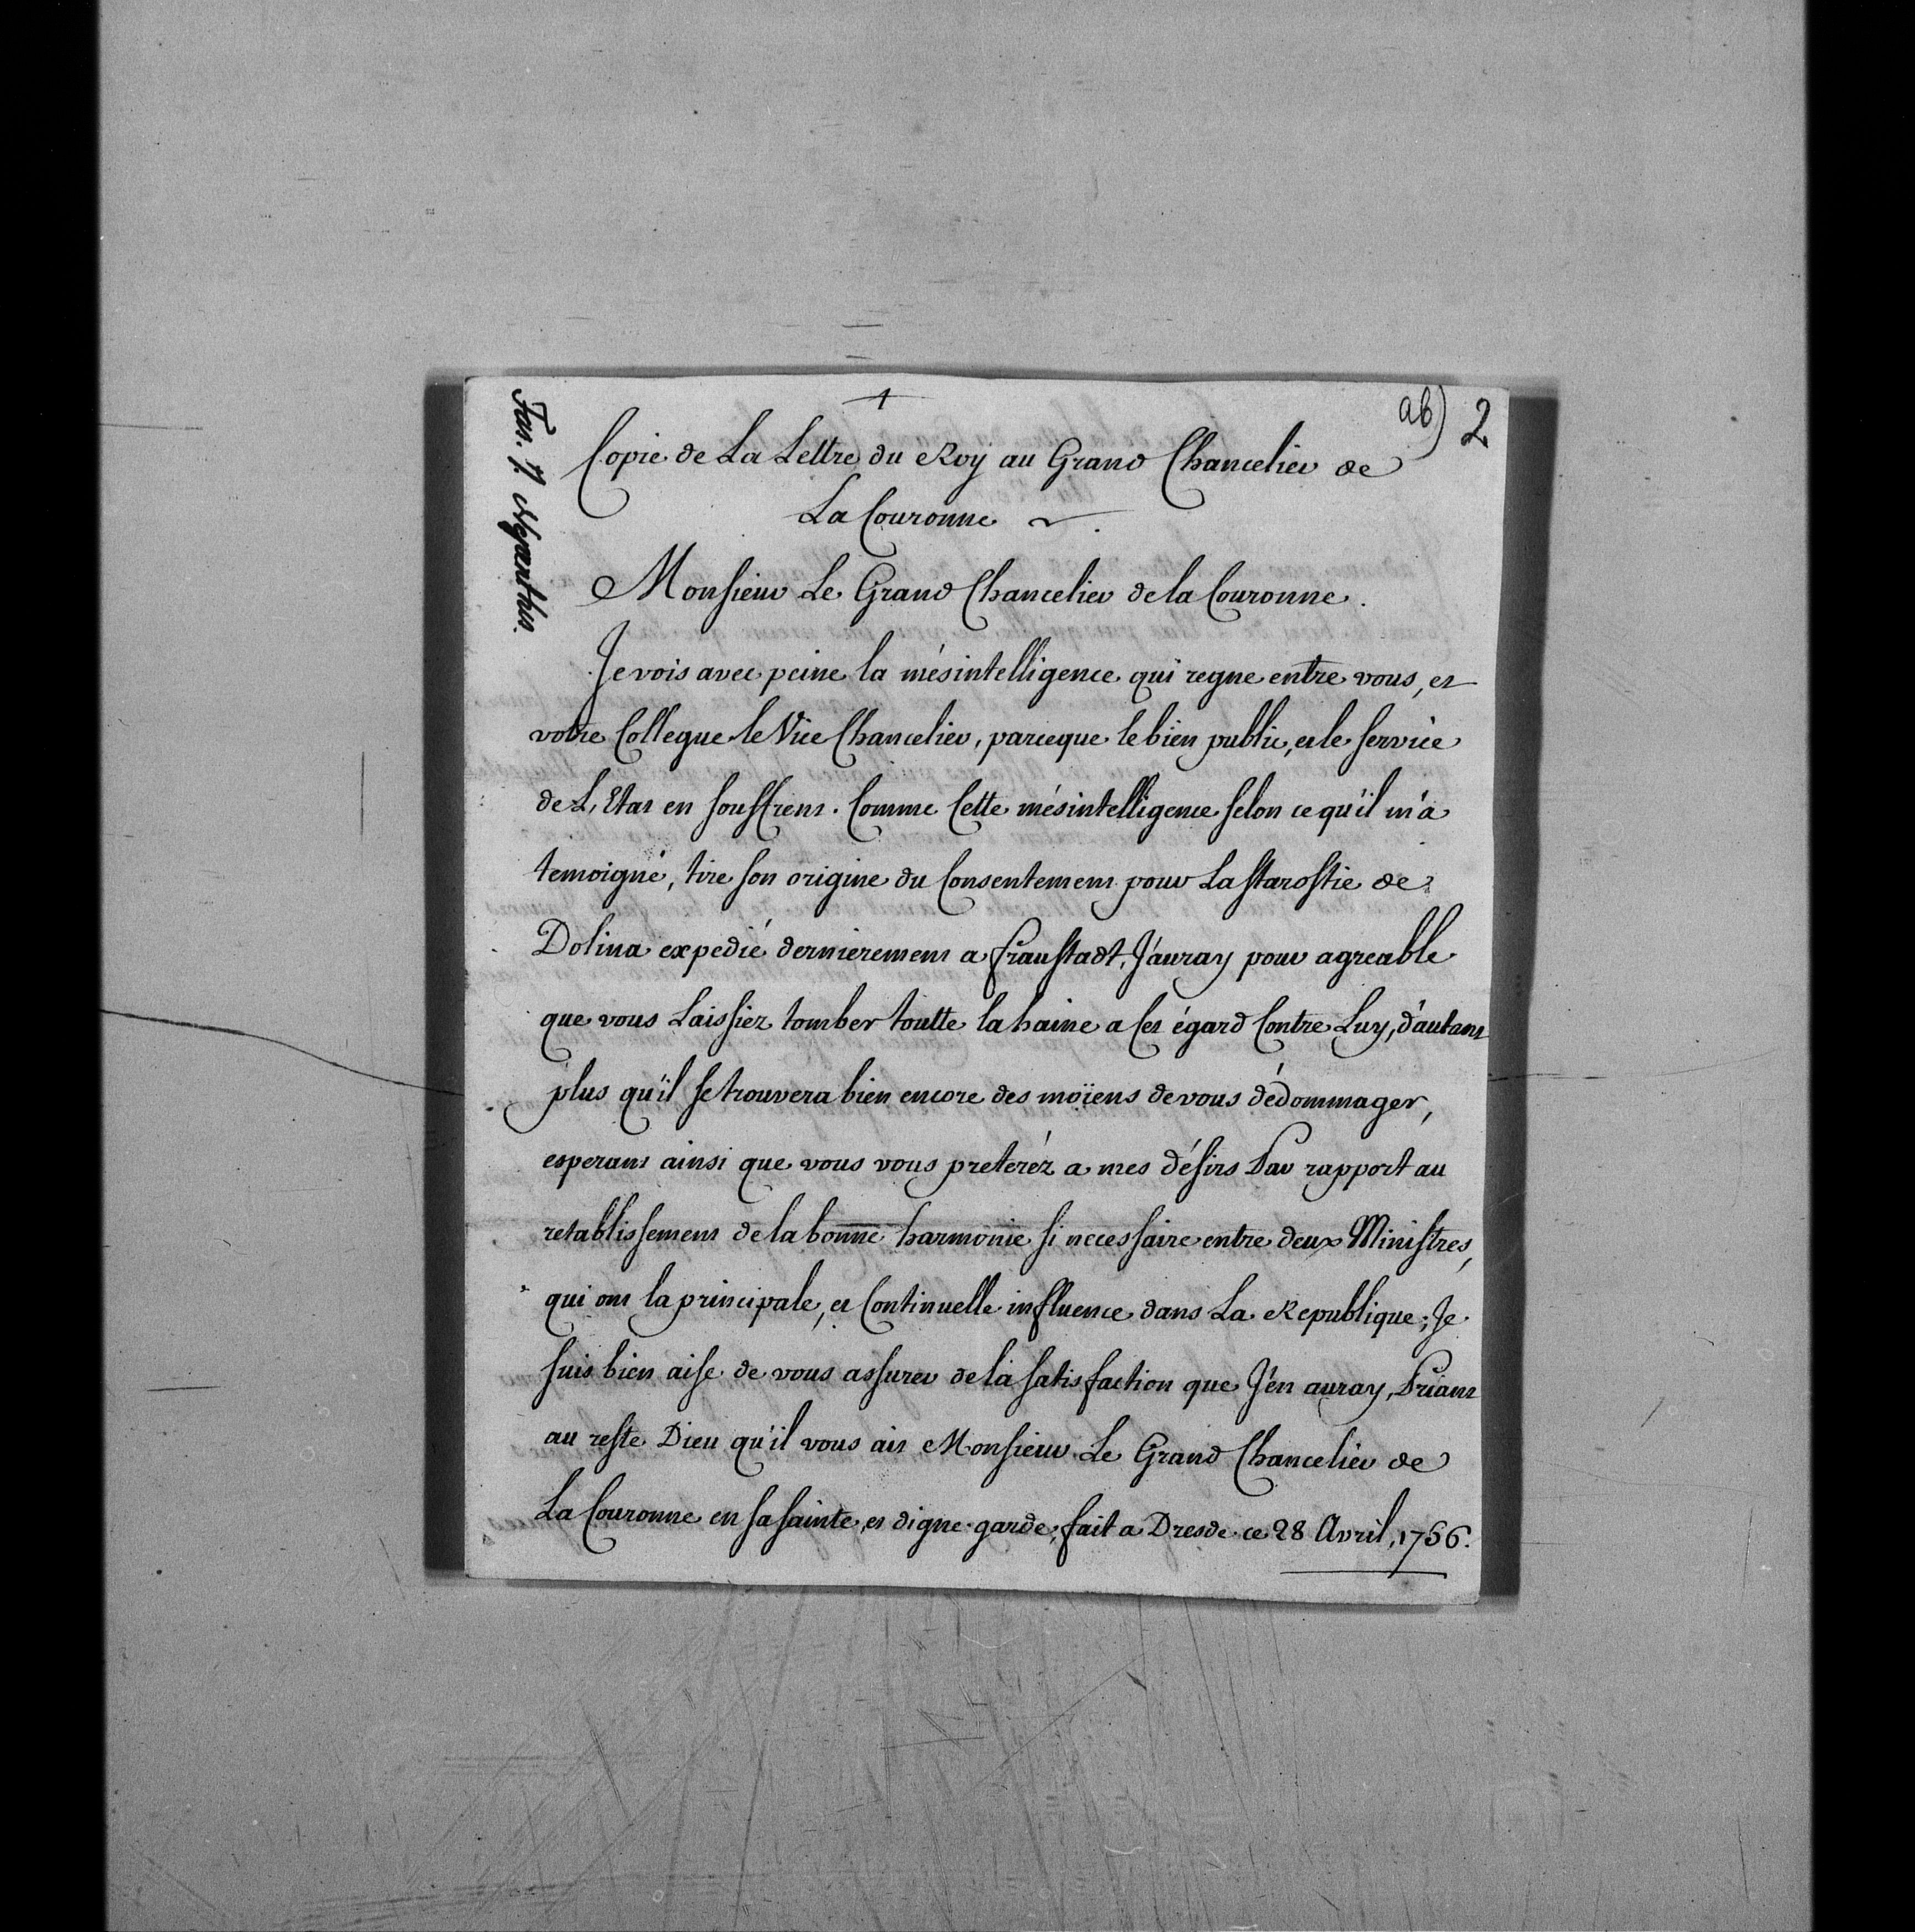 ab) 2
Copie de La Lettre du Roy au Grand Chancelier de
La Couronne
Monsieur Le Grand Chancelier de la Couronne.
Je vois avec peine la mésintelligence qui regne entre vous, et
votre Collegue le Vice Chancelier, parceque le bien public, et le service
de L'Etat en souffrent. Comme Cette mésintelligence selon ce qu'il m'a
temoigné, tire son origine du Consentement pour La starostie de
Dolina expedié dernierement a fraustadt, J'auray pour agreable
que vous Laissiez tomber toutte la haine a Cet égard Contre Luy, d'autant
plus qu'il se trouvera bien encore des moïens de vous dédommager,
esperant ainsi que vous vous preteréz a mes désirs Par rapport au
retablissement de la bonne harmonie si necessaire entre deux Ministres,
qui ont la principale, et Continuelle influence dans La Republique; Je
suis bien aise de vous assurer de la satisfaction que J'en auray, Priant
au reste Dieu qu'il vous ait Monsieur Le Grand Chancelier de
La Couronne en sa sainte, et digne garde, fait a Dresde ce 28 Avril, 1756.